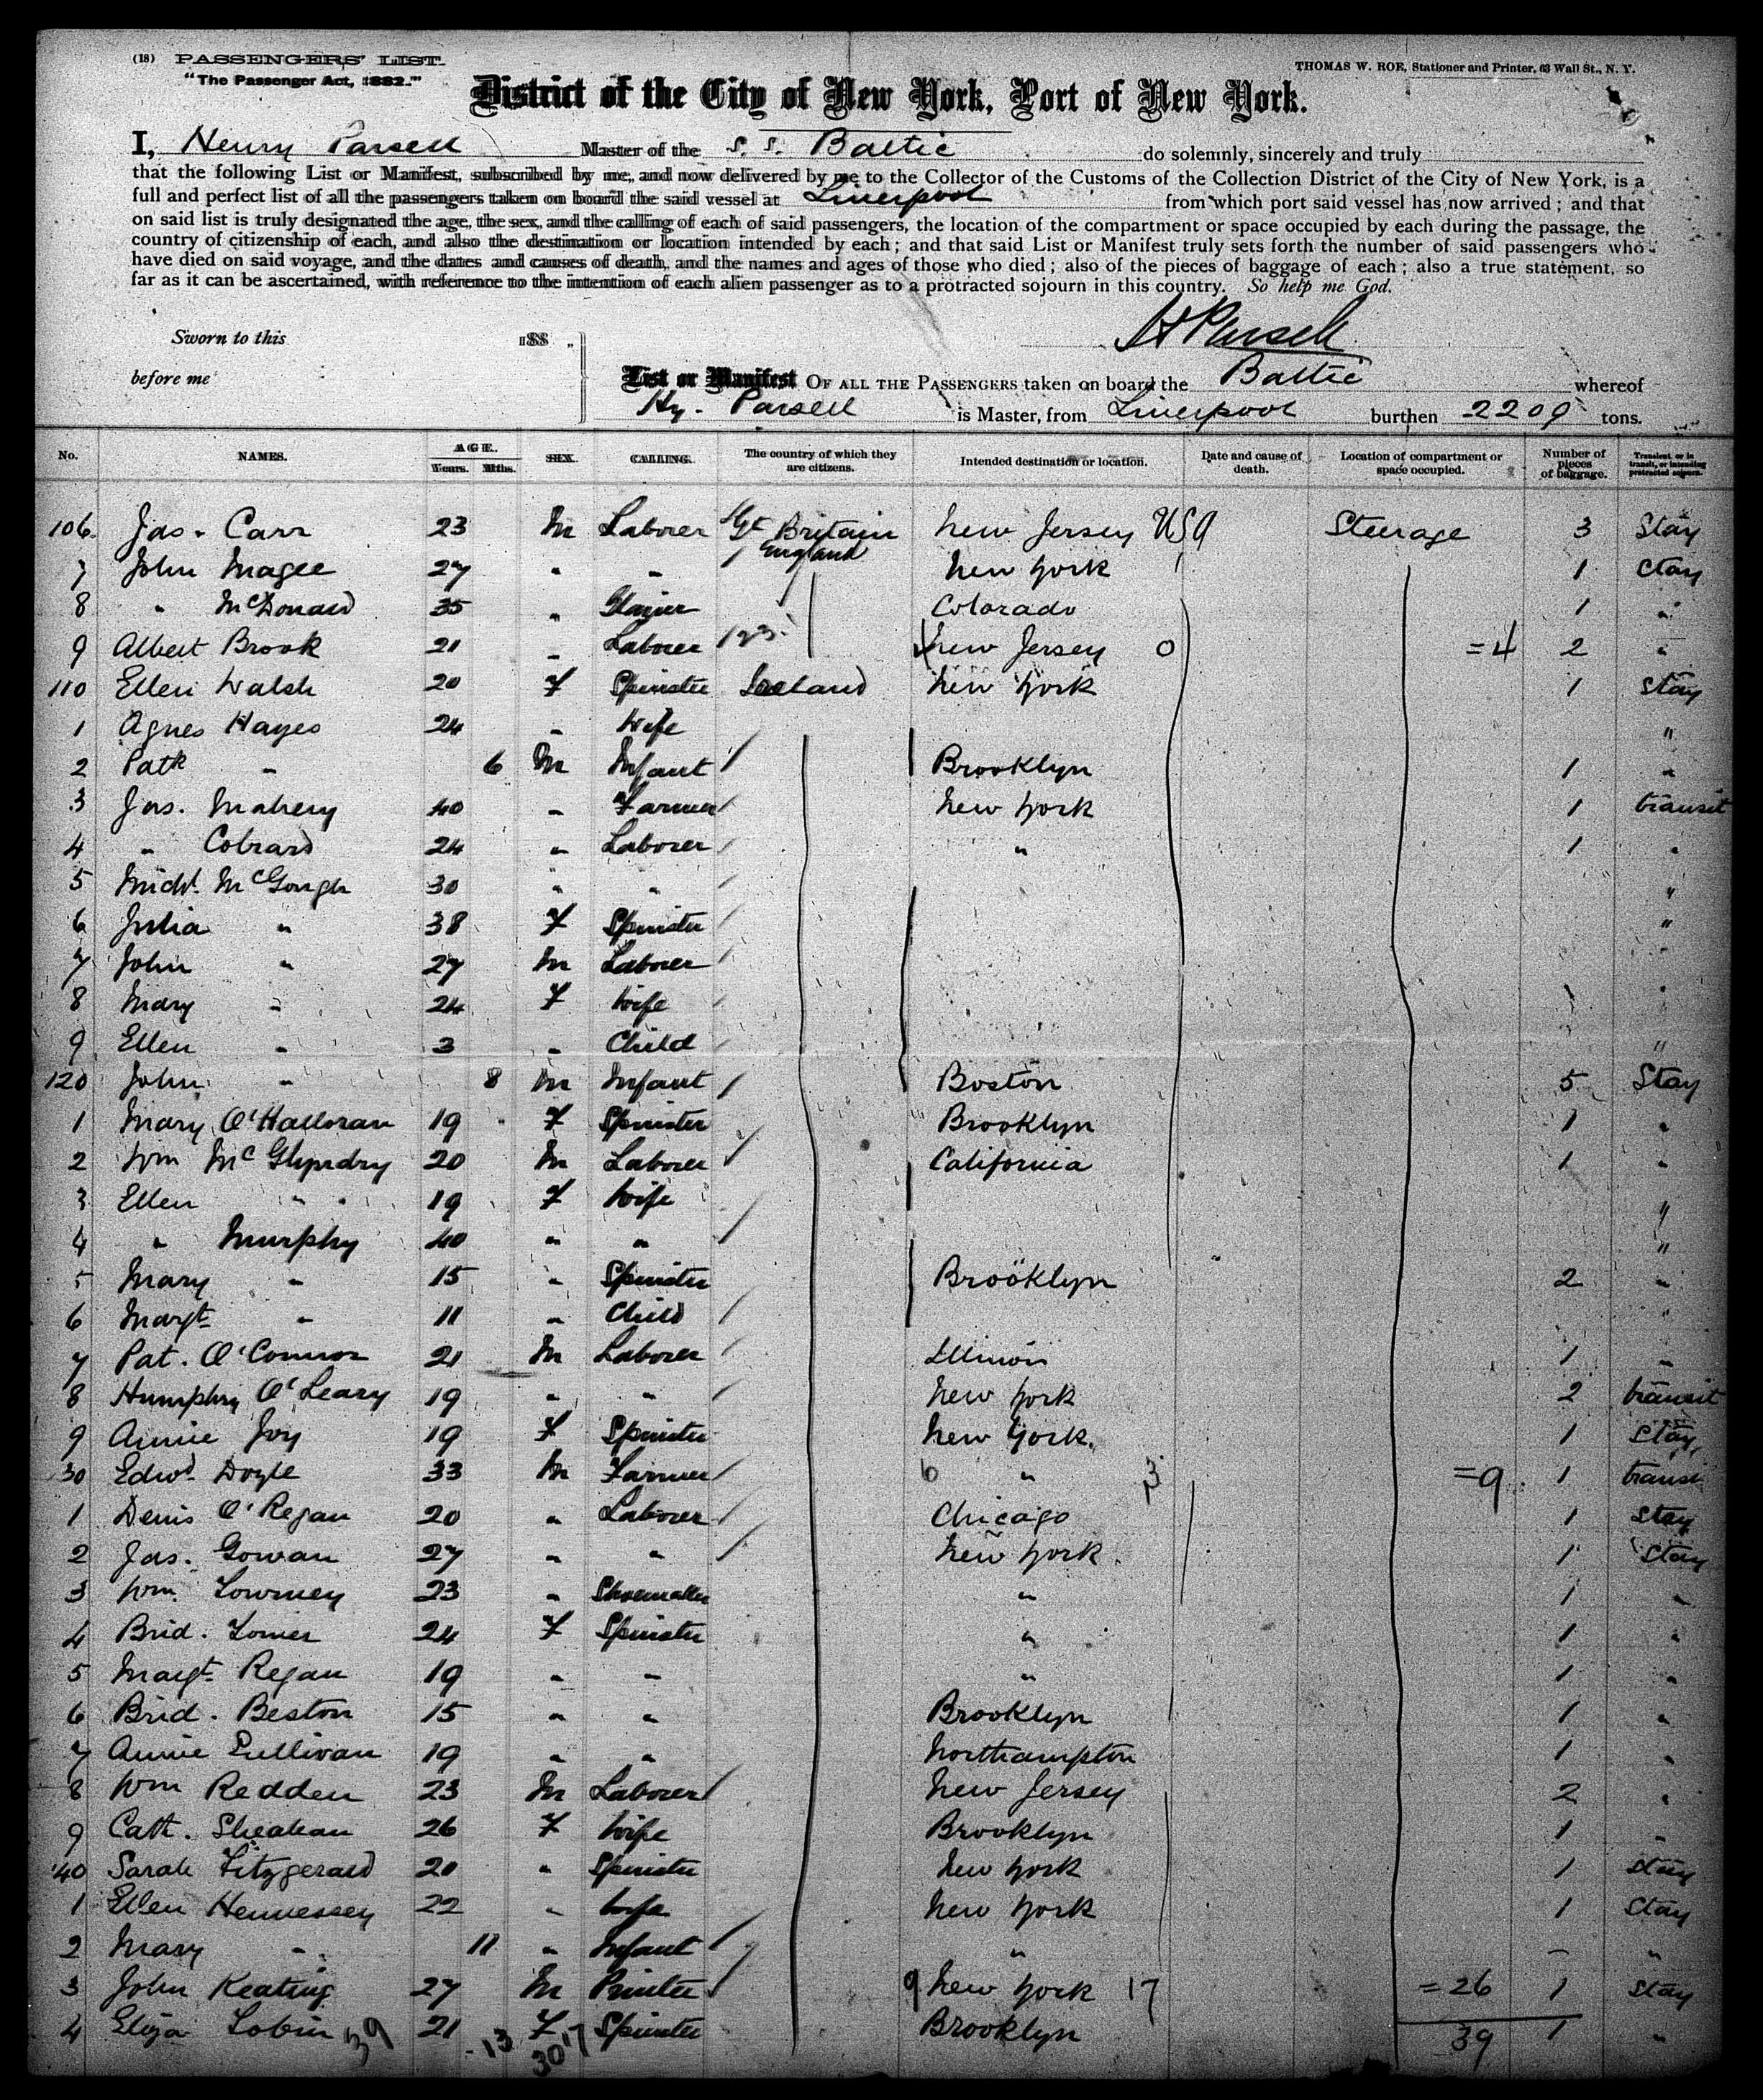 (18) PASSENGERS' LIST.
THOMAS W. ROE, Stationer and Printer, 63 Wall St., N. Y.
"The Passenger Act, 1882."
District of the City of New York, Port of New York.
I, Henry Parsell Master of the S. S. Baltic do solemnly, sincerely and truly
that the following List or Manifest, subscribed by me, and now delivered by me to the Collector of the Customs of the Collection District of the City of New York, is a
full and perfect list of all the passengers taken on board the said vessel at Liverpool from which port said vessel has now arrived; and that
on said list is truly designated the age, the sex, and the calling of each of said passengers, the location of the compartment or space occupied by each during the passage, the
country of citizenship of each, and also the destination or location intended by each; and that said List or Manifest truly sets forth the number of said passengers who
have died on said voyage, and the dates and causes of death, and the names and ages of those who died; also of the pieces of baggage of each; also a true statement, so
far as it can be ascertained, with reference to the intention of each alien passenger as to a protracted sojourn in this country. So help me God.
H Parsell
Sworn to this 188 „
before me
List or Manifest OF ALL THE PASSENGERS taken on board the Baltic whereof
Hy. Parsell is Master, from Liverpool burthen 2209 tons.
No. NAMES. AGE. Years. Mths. SEX. CALLING. The country of which they are citizens. Intended destination or location. Date and cause of death. Location of compartment or space occupied. Number of pieces of baggage. Transient, or in transit, or intending protracted sojourn.
106. Jas. Carr 23 M Laborer Gt Britain England New Jersey USA Steerage 3 Stay
7 John Magee 27 " " New York 1 Stay
8 " McDonald 35 " Glazier Colorado 1 "
9 Albert Brook 21 " Laborer 123 New Jersey 0 =4 2 "
110 Ellen Walsh 20 F Spinster Ireland New York 1 Stay
1 Agnes Hayes 24 " Wife "
2 Patk " 6 M Infant Brooklyn 1 "
3 Jas. Mahery 40 " Farmer New York 1 transit
4 " 24 " Laborer " 1 "
5 Michl. McGough 30 " " "
6 Julia " 38 F Spinster "
7 John " 27 M Laborer "
8 Mary " 24 F Wife "
9 Ellen " 3 " Child "
120 John " 8 M Infant Boston 5 Stay
1 Mary O'Halloran 19 F Spinster Brooklyn 1 "
2 Wm 20 M Laborer California 1 "
3 Ellen " 19 F Wife "
4 " Murphy 40 " " "
5 Mary " 15 " Spinster Brooklyn 2 "
6 Margt " 11 " Child "
7 Pat. O'Connor 21 M Laborer Illinois 1 "
8 Humphry O'Leary 19 " " New York 2 transit
9 Annie Joy 19 F Spinster New York. 1 Stay
30 Edwd. Doyle 33 M Farmer 6 " 3 =9 1 transit
1 Denis O'Regan 20 " Laborer Chicago 1 Stay
2 Jas. Gowan 27 " " New York. 1 Stay
3 Wm. Lowney 23 " Shoemaker " 1 "
4 Brid. 24 F Spinster " 1 "
5 Margt Regan 19 " " " 1 "
6 Brid. Beston 15 " " Brooklyn 1 "
7 Annie Sullivan 19 " " Northampton 1 "
8 Wm Redden 23 M Laborer New Jersey 2 "
9 Cath. Sheahan 26 F Wife Brooklyn 1 "
40 Sarah Fitzgerald 20 " Spinster New York 1 Stay
1 Ellen Hennessey 22 " Wife New York 1 Stay
2 Mary " 11 " Infant " – "
3 John Keating 27 M Printer 9 New York 17 =26 1 Stay
4 Eliza Tobin 21 F Spinster Brooklyn 39 1 "
39 13 30 17